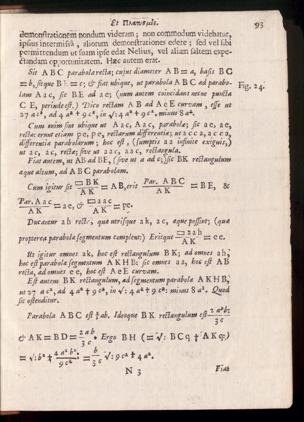 Et Planorum.
93
demonstrationem nondum videram; non commodum videbatur,
ipsius intermissâ, aliorum demonstrationes edere; sed vel sibi
permittendum ut suam ipse edat Nelius, vel aliam saltem expe-
ctandam opportunitatem. Hæc autem erat.
Sit ABC parabola recta; cujus diameter AB=a, basis BC
=b,
Fig. 24.
27 ac², ad 4a² + 9c², in √: 4a² + 9c², minus 8a³.
Cum enim sint ubique ut A2c, Aac, parabolæ; sic ae, ae,
rectæ: erunt etiam pe, pe, rectarum differentiæ; ut acca, acca,
differentiæ parabolarum; hoc est, (sumptis aa infinite exiguis,)
ut 2c, 2c, rectæ; sive ut 22c, 22c, rectangula.
Fiat autem, ut AB ad BE, (sive ut a ad c;) sic BK rectangulum
aque altum, ad ABC parabolam.
Cum igitur sit BK/AK = AB, erit Par. ABC/AK = BE, &
Par. Aac/AK = ae, & 22c/AK = pe.
Ducatur 2h recta, quæ utrisque 2k, 2c, æque possint; (quæ
propterea parabolæ segmentum complent:) Eritque 22h/AK = ee.
Ut igitur omnes 2k, hoc est rectangulum BK; ad omnes 2h,
hoc est parabolæ segmentum AKHB: sic omnes 22, hoc est AB
recta, ad omnes ee, hoc est AeE curvam.
Est autem BK rectangulum, ad segmentum parabolæ AKHB,
ut 27 ac², ad 4a² + 9c², in √: 4a² + 9c²: minus 8a³. Quod
sic ostenditur.
Parabola ABC est ⅔ab. Ideoque BK rectangulum est 2a²b/3c
& AK=BD= 2ab/3c. Ergo BH (= √: BCq + AKq:)
= √: b² + 4a²b²/9c² = b/3c √: 9c² + 4a².
N 3
Fiat